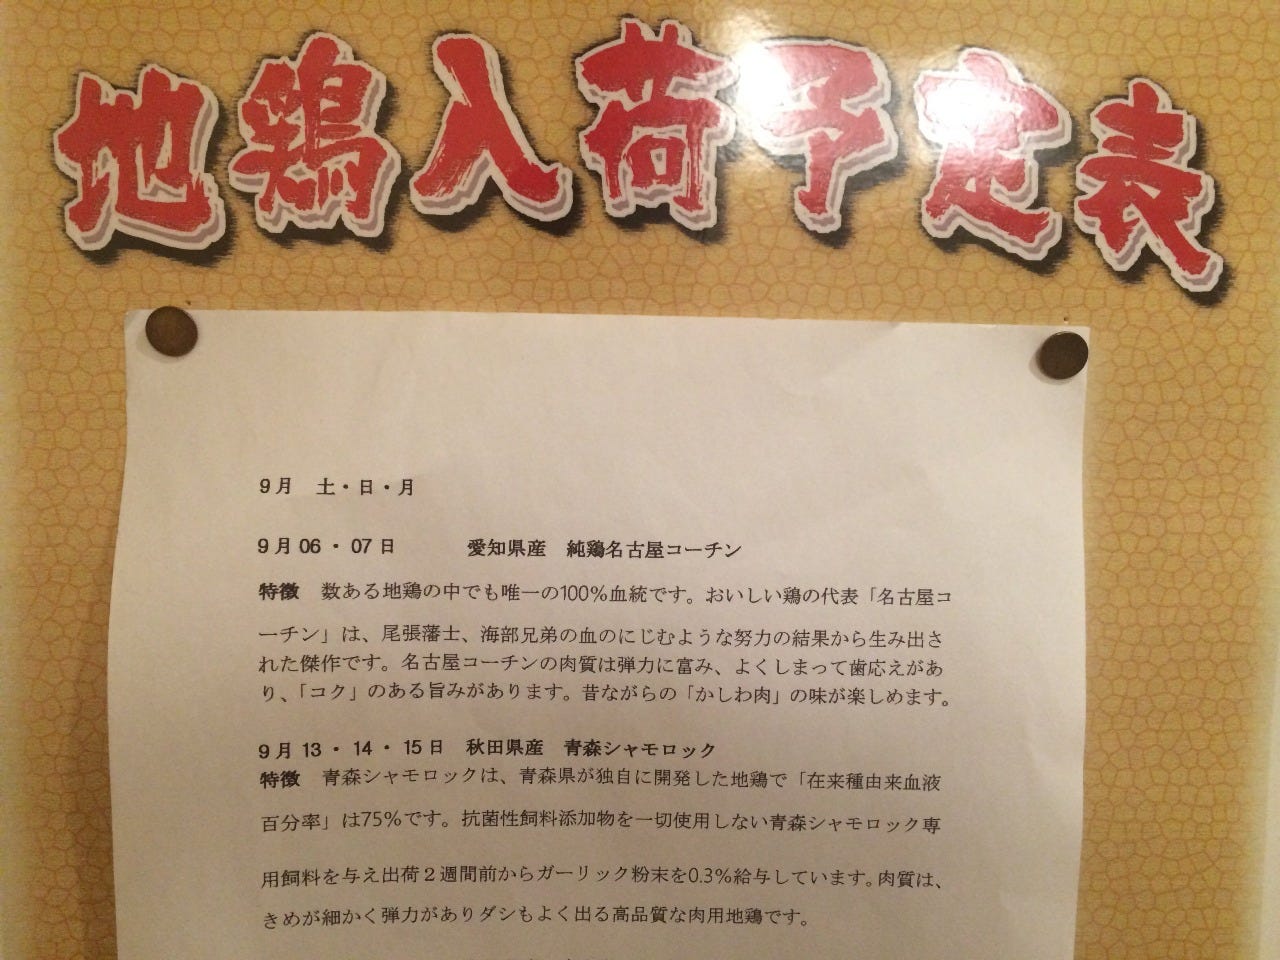 地鶏入荷予定表
9月　土・日・月
9月06・07日　愛知県産　純鶏名古屋コーチン
特徴　数ある地鶏の中でも唯一の100%血統です。おいしい鶏の代表「名古屋コ
ーチン」は、尾張藩士、海部兄弟の血のにじむような努力の結果から生み出さ
れた傑作です。名古屋コーチンの肉質は弾力に富み、よくしまって歯応えがあ
り、「コク」のある旨みがあります。昔ながらの「かしわ肉」の味が楽しめます。
9月13・14・15日　秋田県産　青森シャモロック
特徴　青森シャモロックは、青森県が独自に開発した地鶏で「在来種由来血液
百分率」は75%です。抗菌性飼料添加物を一切使用しない青森シャモロック専
用飼料を与え出荷２週間前からガーリック粉末を0.3%給与しています。肉質は、
きめが細かく弾力がありダシもよく出る高品質な肉用地鶏です。